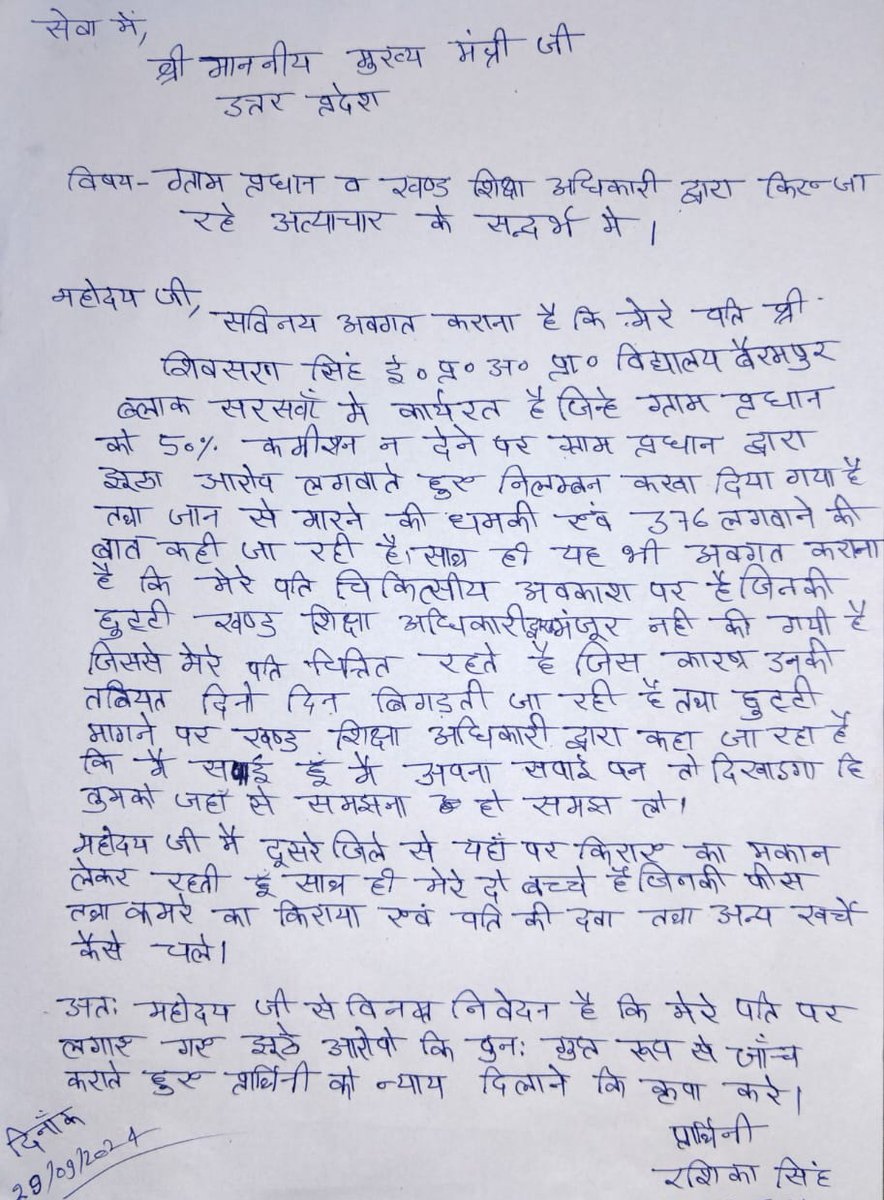 सेवा में,
श्री माननीय मुख्य मंत्री जी
उत्तर प्रदेश
विषय- ग्राम प्रधान व खण्ड शिक्षा अधिकारी द्वारा किए जा
रहे अत्याचार के सन्दर्भ मे ।
महोदय जी,
सविनय अवगत कराना है कि मेरे पति श्री
शिवसरण सिंह ई० प्र० अ० प्रा० विद्यालय बैरमपुर
ब्लाक सरसवाँ मे कार्यरत है जिन्हे ग्राम प्रधान
को 50% कमीशन न देने पर ग्राम प्रधान द्वारा
झूठा आरोप लगवाते हुए निलम्बन करवा दिया गया है
तथा जान से मारने की धमकी एवं 376 लगवाने की
बात कही जा रही है। साथ ही यह भी अवगत कराना
है कि मेरे पति चिकित्सीय अवकाश पर है जिनकी
छुट्टी खण्ड शिक्षा अधिकारी द्वारा मंजूर नही की गयी है
जिससे मेरे पति चिन्तित रहते है जिस कारण उनकी
तबियत दिनो दिन बिगड़ती जा रही है तथा छुट्टी
मागने पर खण्ड शिक्षा अधिकारी द्वारा कहा जा रहा है
कि मै सपाई हूँ मै अपना सपाई पन तो दिखाऊगा हि
तुमको जहाँ से समझना हो समझ लो।
महोदय जी मै दूसरे जिले से यहाँ पर किराए का मकान
लेकर रहती हूँ साथ ही मेरे दो बच्चे है जिनकी फीस
तथा कमरे का किराया एवं पति की दवा तथा अन्य खर्चे
कैसे चले।
अतः महोदय जी से विनम्र निवेदन है कि मेरे पति पर
लगाए गए झूठे आरोपो कि पुनः गुप्त रूप से जाँच
कराते हुए प्रार्थिनी को न्याय दिलाने कि कृपा करे।
प्रार्थिनी
रशिका सिंह
दिनाँक
28/09/2024